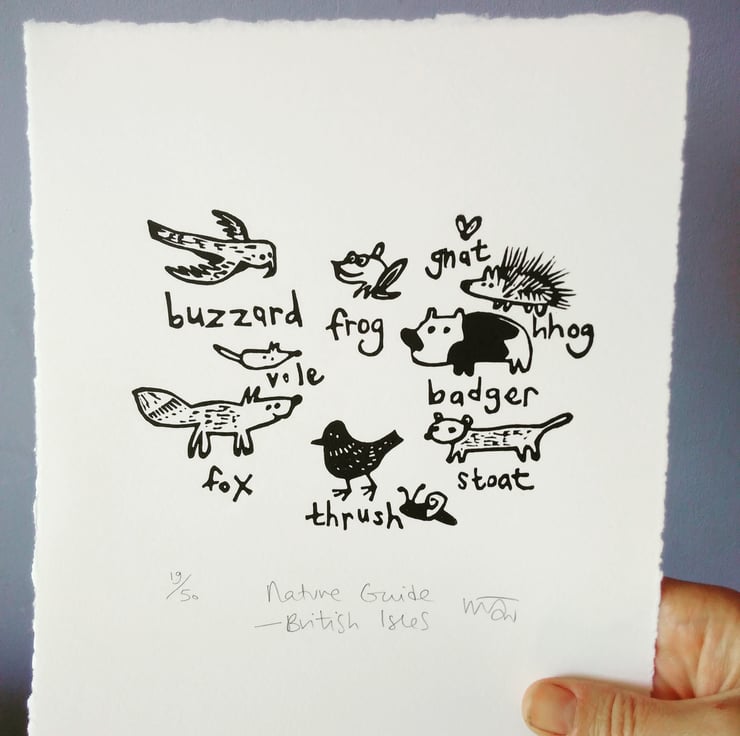 buzzard
frog
gnat
hhog
vole
badger
fox
stoat
thrush
19/50
Nature Guide
—British Isles